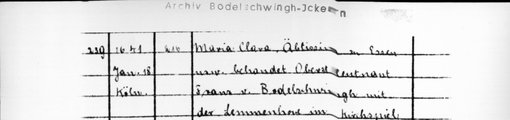 Archiv Bodelschwingh-Jckern
239 1651 616 Maria Clara, Äbtissin zu Essen
Jan. 18. usw. behandet Oberstleutnant
Köln. Franz v. Bodelschwingh mit
der Lemmenhove im Kirchspiel